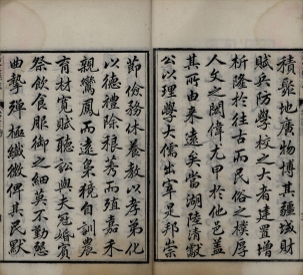 積縣地廣物博其疆域財
賦兵防學校之大者建置增
析隆於往古而民俗之樸厚
人文之閎偉尤甲於他邑蓋
其所由來遠矣當湖陸清獻
公以理學大儒出宰是邦崇
節儉務休養敦以孝弟化
以德禮除稂莠而殖嘉禾
親鸞鳳而遠梟獍自訓農
育材寬賦聽訟與夫冠婚賓
祭飲食服御之細莫不勤懇
曲摯殫極纖微俾其民默